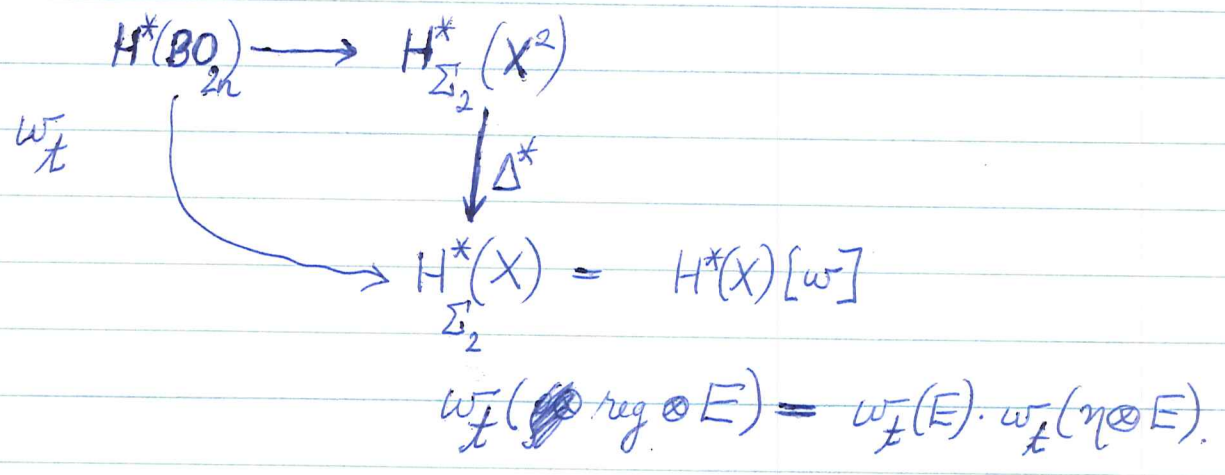 H*(BO_{2n}) ⟶ H*_{Σ_2}(X²)
w_t
Δ*
H*_{Σ_2}(X) = H*(X)[w]
w_t(reg ⊗ E) = w_t(E) · w_t(η ⊗ E).